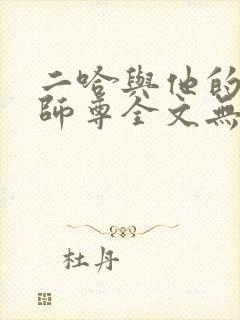 二哈與他的
師尊全文無
杜丹